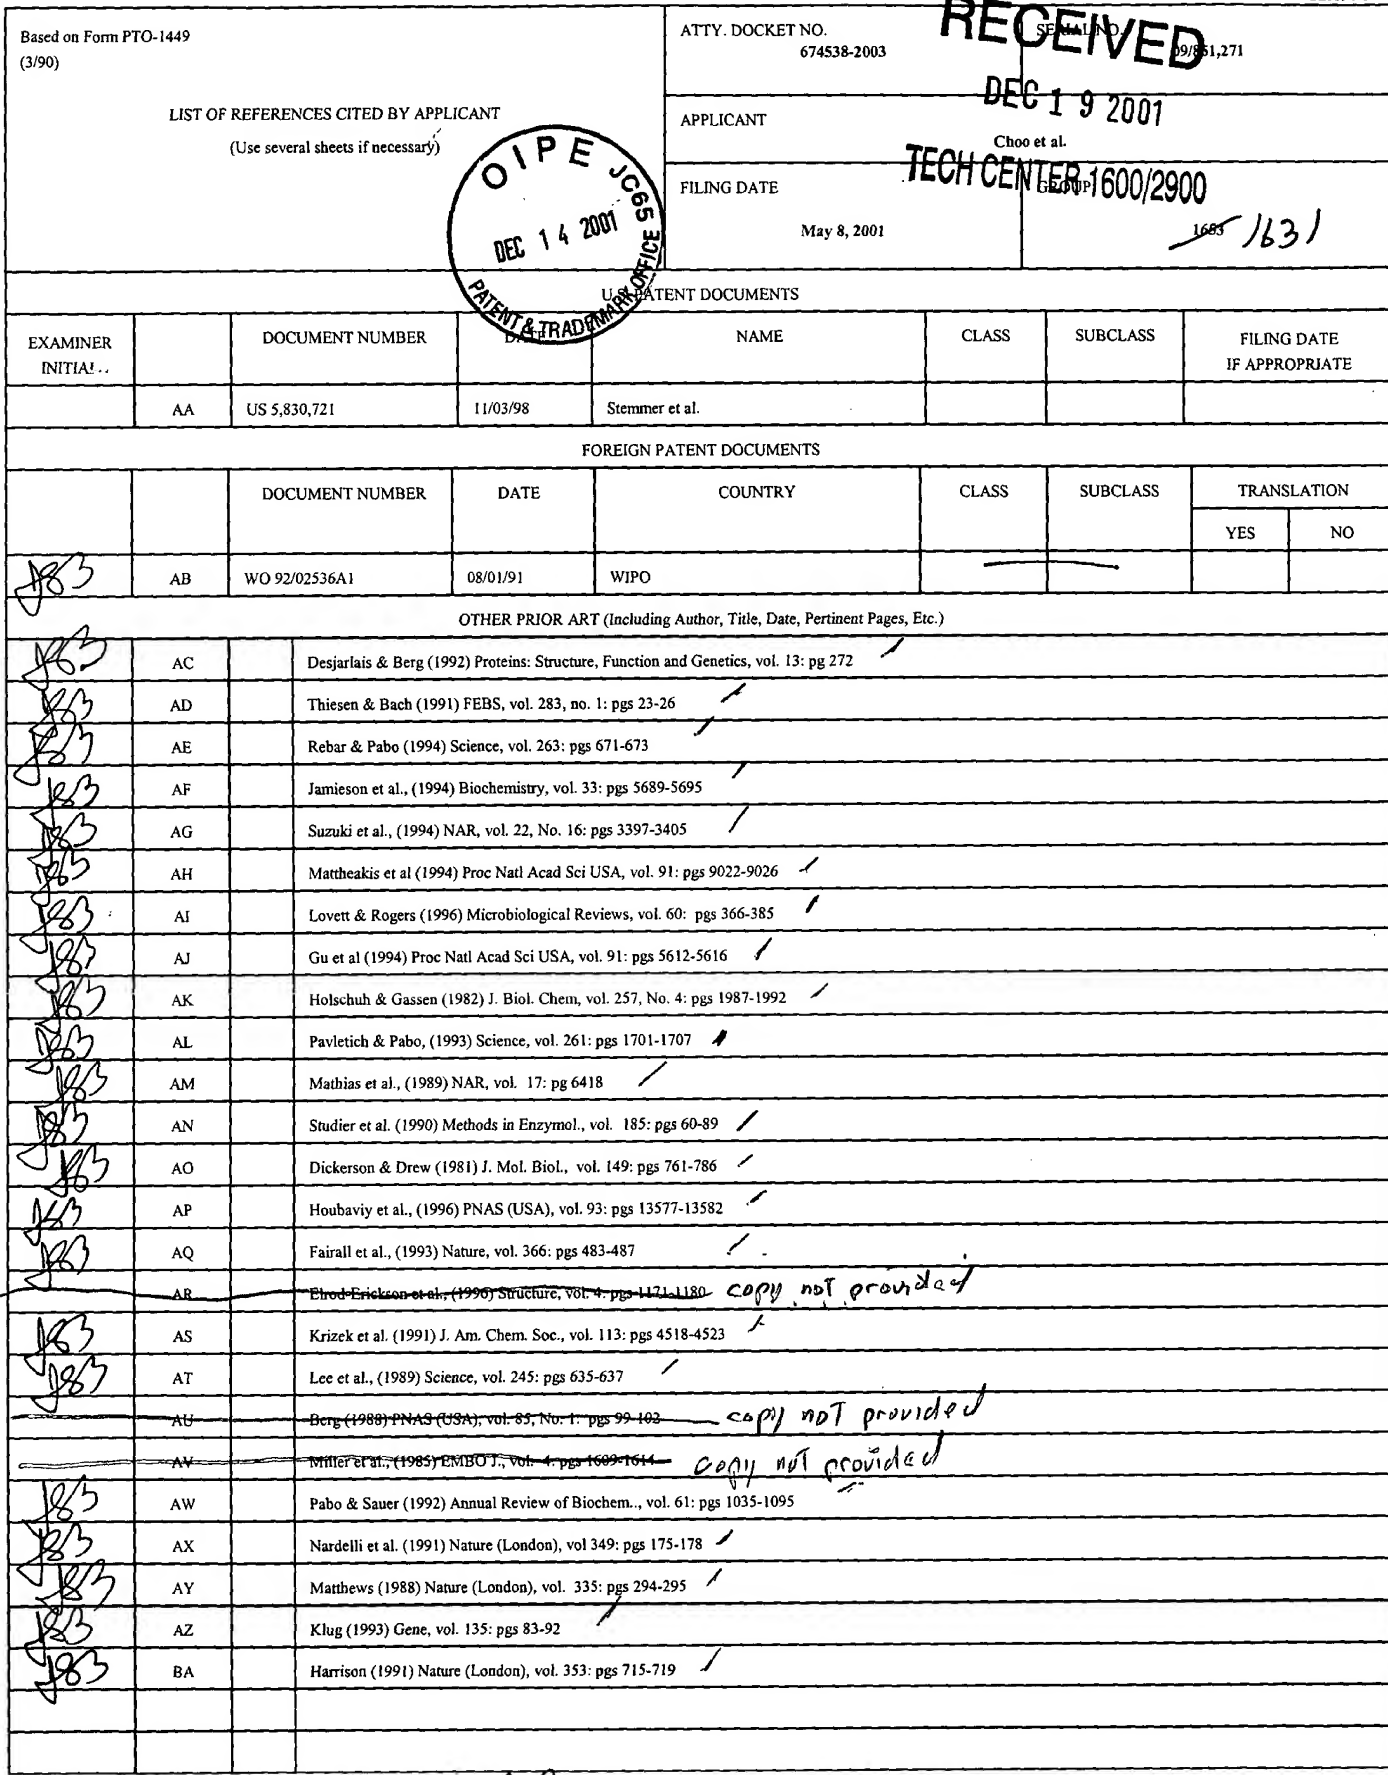 Based on Form PTO-1449
(3/90)
LIST OF REFERENCES CITED BY APPLICANT
(Use several sheets if necessary)
ATTY. DOCKET NO.
674538-2003
SERIAL NO.
09/851,271
RECEIVED
DEC 19 2001
TECH CENTER 1600/2900
APPLICANT
Choo et al.
FILING DATE
May 8, 2001
GROUP
1653 1631
OIPE JC65
DEC 14 2001
PATENT & TRADEMARK OFFICE
U.S. PATENT DOCUMENTS
EXAMINER INITIAL DOCUMENT NUMBER DATE NAME CLASS SUBCLASS FILING DATE IF APPROPRIATE
AA US 5,830,721 11/03/98 Stemmer et al.
FOREIGN PATENT DOCUMENTS
DOCUMENT NUMBER DATE COUNTRY CLASS SUBCLASS TRANSLATION
YES NO
AB WO 92/02536A1 08/01/91 WIPO
OTHER PRIOR ART (Including Author, Title, Date, Pertinent Pages, Etc.)
AC Desjarlais & Berg (1992) Proteins: Structure, Function and Genetics, vol. 13: pg 272
AD Thiesen & Bach (1991) FEBS, vol. 283, no. 1: pgs 23-26
AE Rebar & Pabo (1994) Science, vol. 263: pgs 671-673
AF Jamieson et al., (1994) Biochemistry, vol. 33: pgs 5689-5695
AG Suzuki et al., (1994) NAR, vol. 22, No. 16: pgs 3397-3405
AH Mattheakis et al (1994) Proc Natl Acad Sci USA, vol. 91: pgs 9022-9026
AI Lovett & Rogers (1996) Microbiological Reviews, vol. 60: pgs 366-385
AJ Gu et al (1994) Proc Natl Acad Sci USA, vol. 91: pgs 5612-5616
AK Holschuh & Gassen (1982) J. Biol. Chem, vol. 257, No. 4: pgs 1987-1992
AL Pavletich & Pabo, (1993) Science, vol. 261: pgs 1701-1707
AM Mathias et al., (1989) NAR, vol. 17: pg 6418
AN Studier et al. (1990) Methods in Enzymol., vol. 185: pgs 60-89
AO Dickerson & Drew (1981) J. Mol. Biol., vol. 149: pgs 761-786
AP Houbaviy et al., (1996) PNAS (USA), vol. 93: pgs 13577-13582
AQ Fairall et al., (1993) Nature, vol. 366: pgs 483-487
AR Elrod-Erickson et al., (1996) Structure, vol. 4: pgs 1171-1180 copy not provided
AS Krizek et al. (1991) J. Am. Chem. Soc., vol. 113: pgs 4518-4523
AT Lee et al., (1989) Science, vol. 245: pgs 635-637
AU Berg (1988) PNAS (USA), vol. 85, No. 1: pgs 99-102 copy not provided
AV Miller et al., (1985) EMBO J., vol. 4: pgs 1609-1614 copy not provided
AW Pabo & Sauer (1992) Annual Review of Biochem.., vol. 61: pgs 1035-1095
AX Nardelli et al. (1991) Nature (London), vol 349: pgs 175-178
AY Matthews (1988) Nature (London), vol. 335: pgs 294-295
AZ Klug (1993) Gene, vol. 135: pgs 83-92
BA Harrison (1991) Nature (London), vol. 353: pgs 715-719